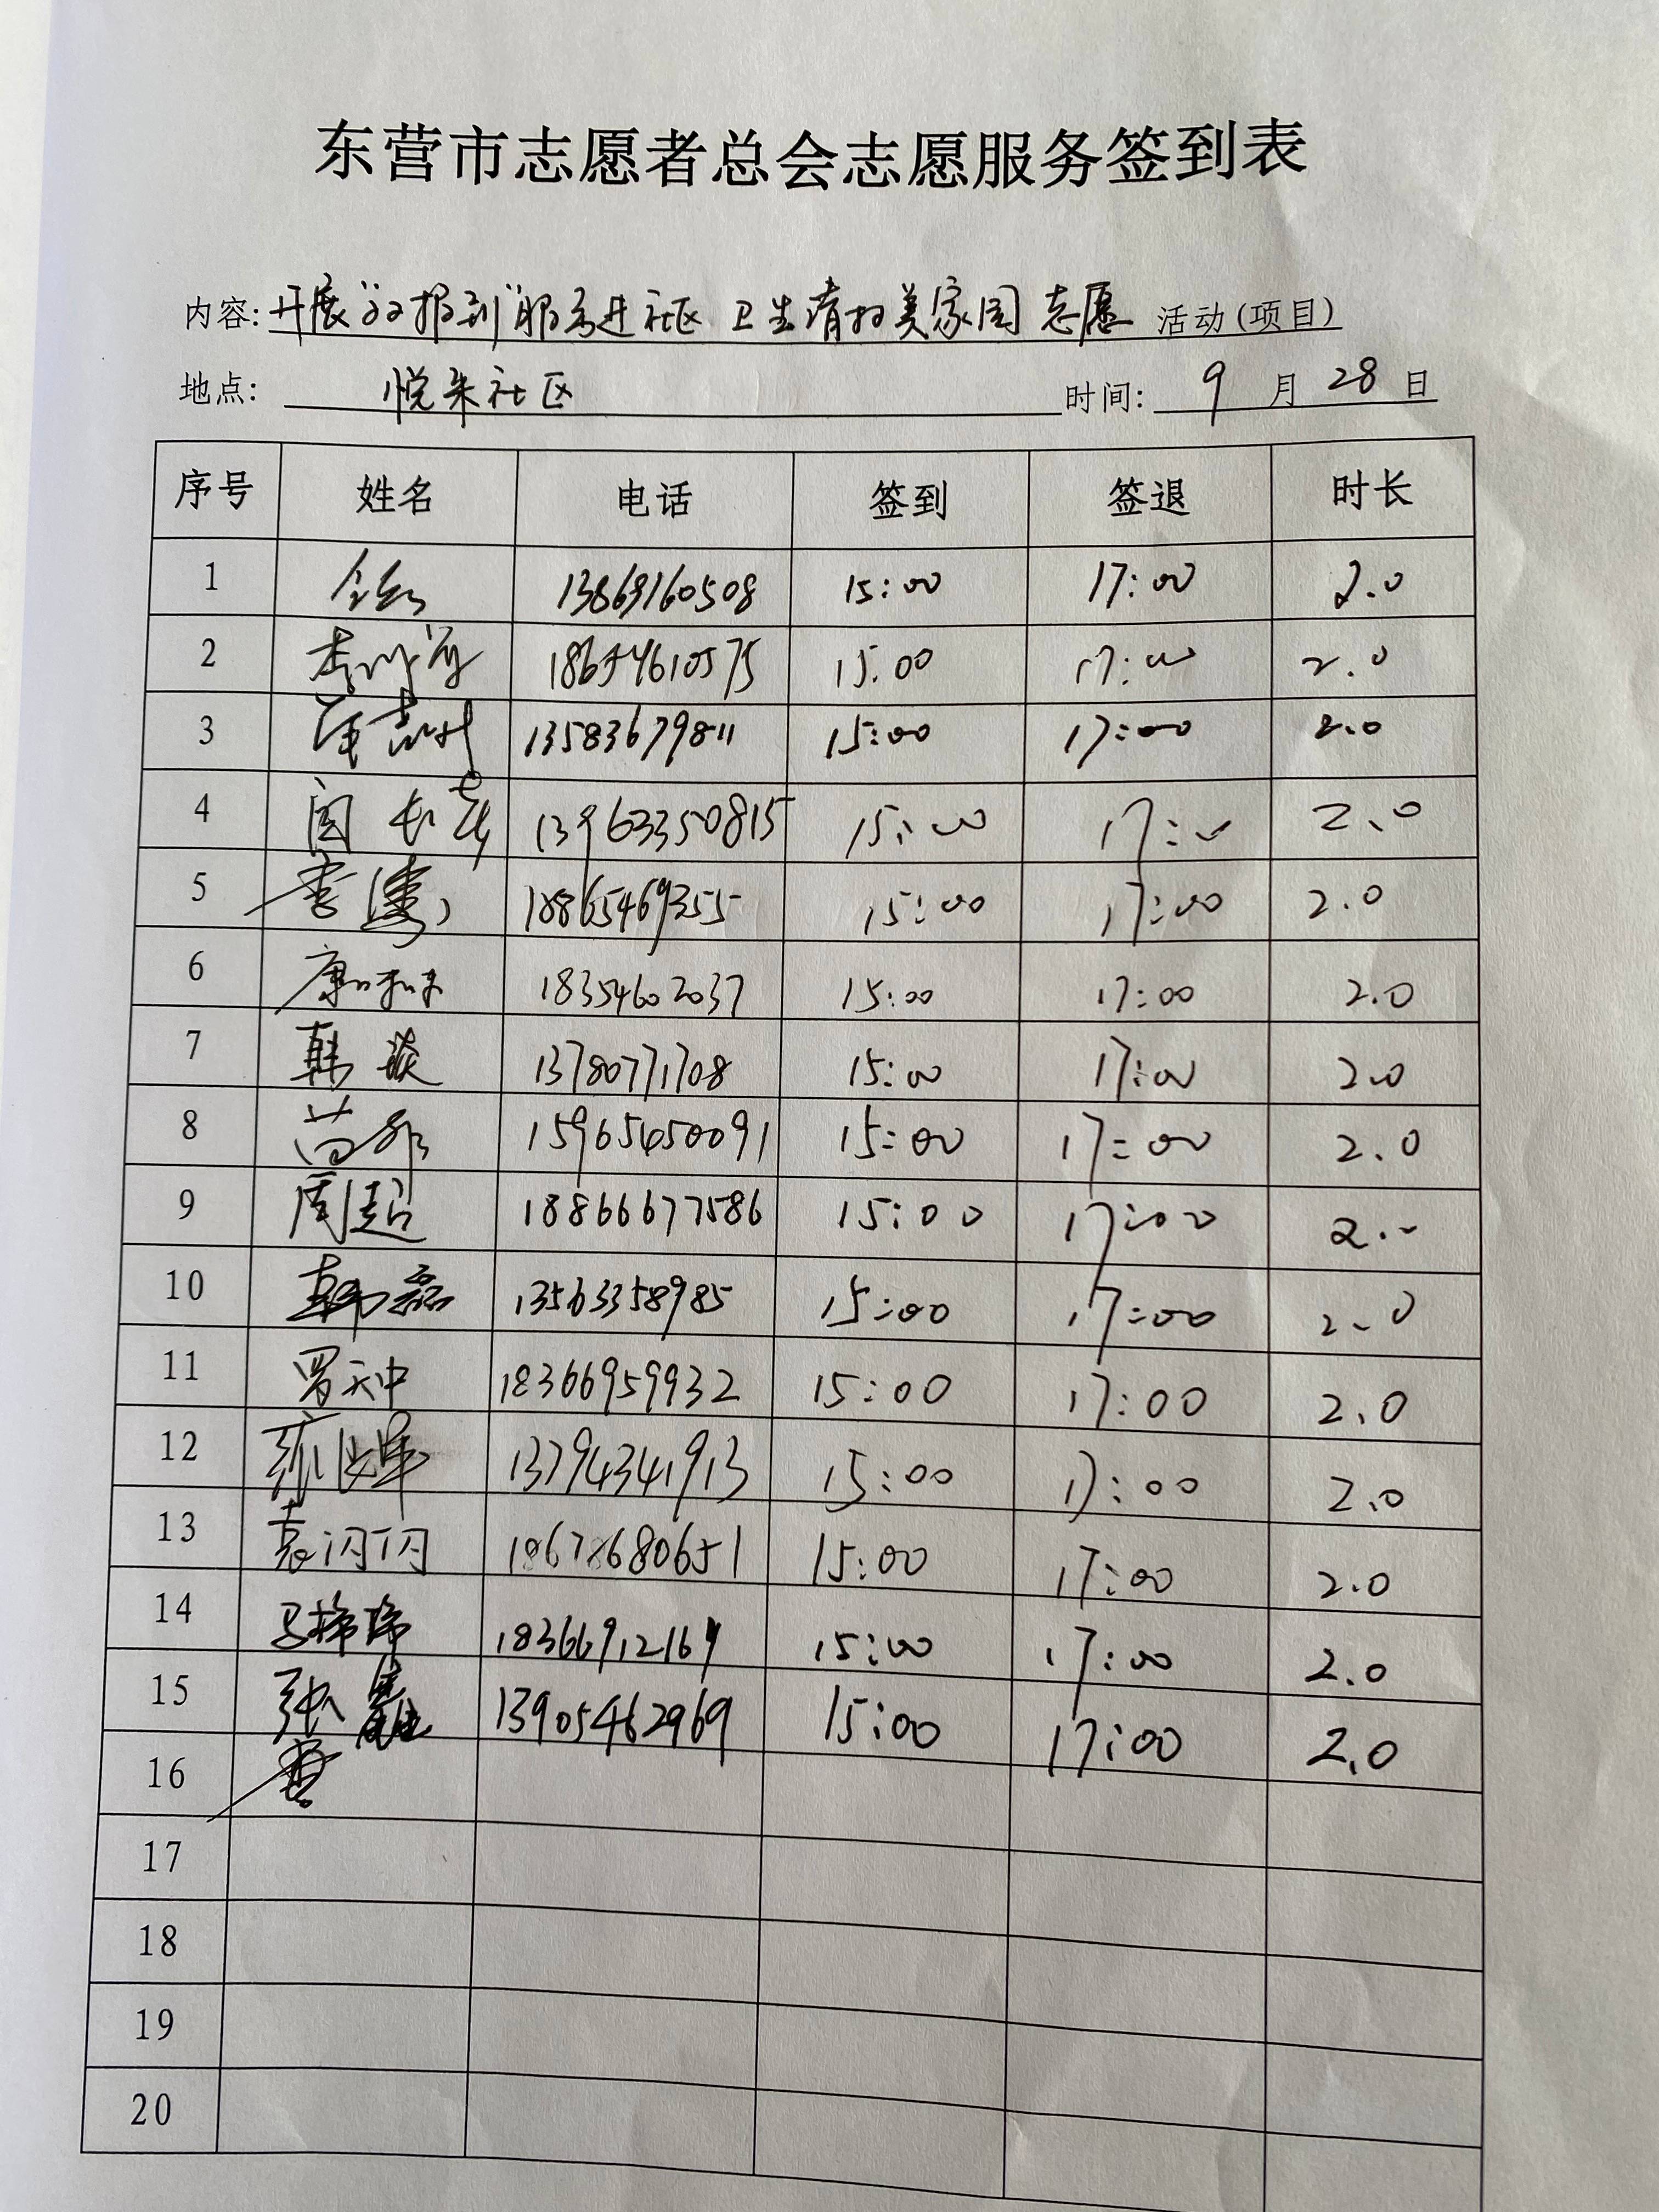 东营市志愿者总会志愿服务签到表
内容: 开展"双报到"服务进社区 卫生清扫美家园 志愿 活动(项目)
地点: 悦来社区 时间: 9 月 28 日
序号 姓名 电话 签到 签退 时长
1 13869160508 15:00 17:00 2.0
2 18654610575 15:00 17:00 2.0
3 13583679811 15:00 17:00 2.0
4 13963350815 15:00 17:00 2.0
5 李 18865469355 15:00 17:00 2.0
6 康 18354602037 15:00 17:00 2.0
7 韩 13780771708 15:00 17:00 2.0
8 苗 15965450091 15:00 17:00 2.0
9 周超 18866677586 15:00 17:00 2.0
10 韩磊 13563358985 15:00 17:00 2.0
11 罗天中 18366959932 15:00 17:00 2.0
12 13794341913 15:00 17:00 2.0
13 袁闪闪 18678680651 15:00 17:00 2.0
14 马 18366912169 15:00 17:00 2.0
15 张 13905462969 15:00 17:00 2.0
16
17
18
19
20